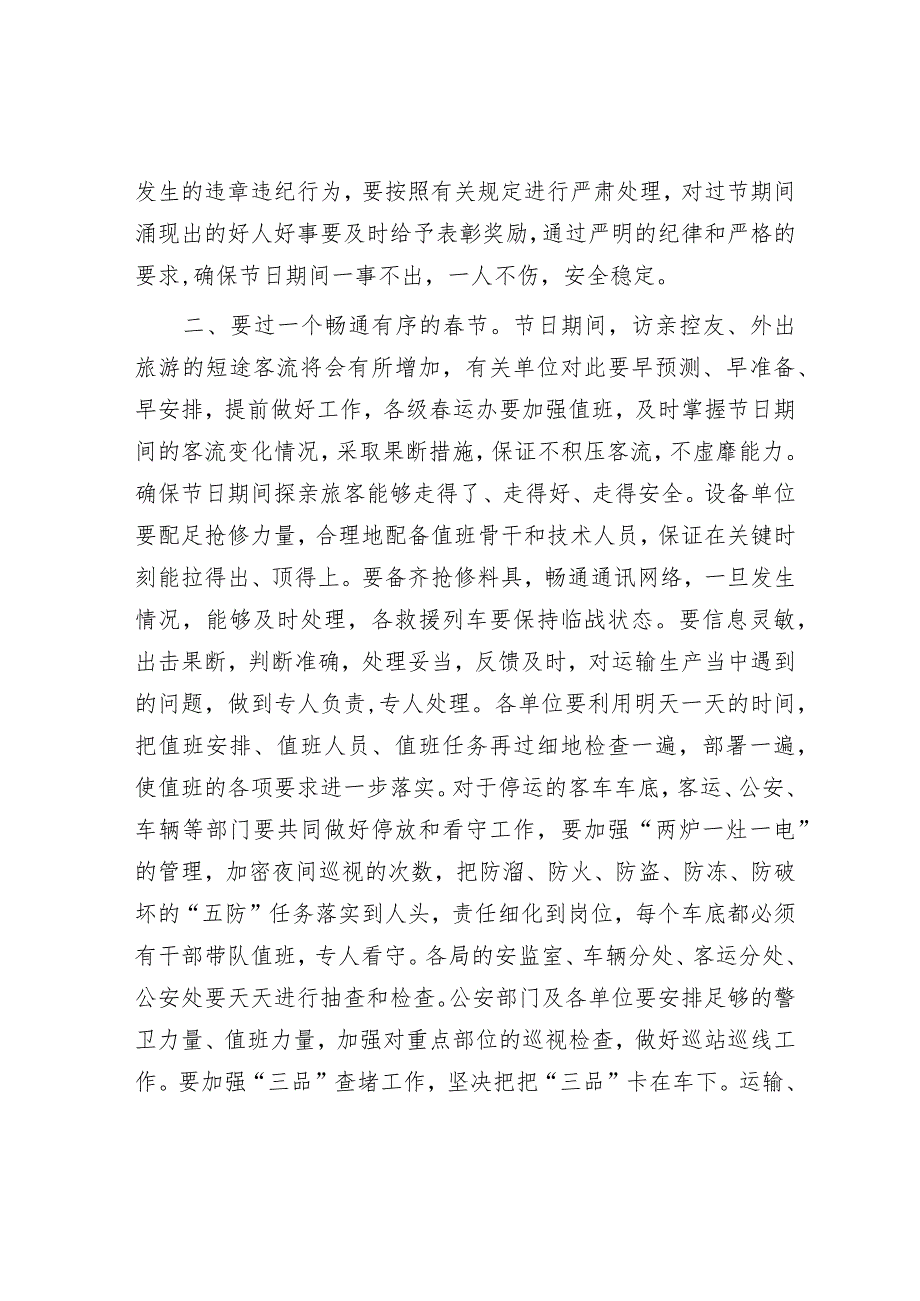 发生的违章违纪行为，要按照有关规定进行严肃处理，对过节期间
涌现出的好人好事要及时给予表彰奖励,通过严明的纪律和严格的
要求,确保节日期间一事不出，一人不伤，安全稳定。
二、要过一个畅通有序的春节。节日期间，访亲控友、外出
旅游的短途客流将会有所增加，有关单位对此要早预测、早准备、
早安排，提前做好工作，各级春运办要加强值班，及时掌握节日期
间的客流变化情况，采取果断措施，保证不积压客流，不虚靡能力。
确保节日期间探亲旅客能够走得了、走得好、走得安全。设备单位
要配足抢修力量，合理地配备值班骨干和技术人员，保证在关键时
刻能拉得出、顶得上。要备齐抢修料具，畅通通讯网络，一旦发生
情况，能够及时处理，各救援列车要保持临战状态。要信息灵敏，
出击果断，判断准确，处理妥当，反馈及时，对运输生产当中遇到
的问题，做到专人负责,专人处理。各单位要利用明天一天的时间，
把值班安排、值班人员、值班任务再过细地检查一遍，部署一遍，
使值班的各项要求进一步落实。对于停运的客车车底，客运、公安、
车辆等部门要共同做好停放和看守工作，要加强“两炉一灶一电”
的管理，加密夜间巡视的次数，把防溜、防火、防盗、防冻、防破
坏的“五防”任务落实到人头，责任细化到岗位，每个车底都必须
有干部带队值班，专人看守。各局的安监室、车辆分处、客运分处、
公安处要天天进行抽查和检查。公安部门及各单位要安排足够的警
卫力量、值班力量，加强对重点部位的巡视检查，做好巡站巡线工
作。要加强“三品”查堵工作，坚决把把“三品”卡在车下。运输、